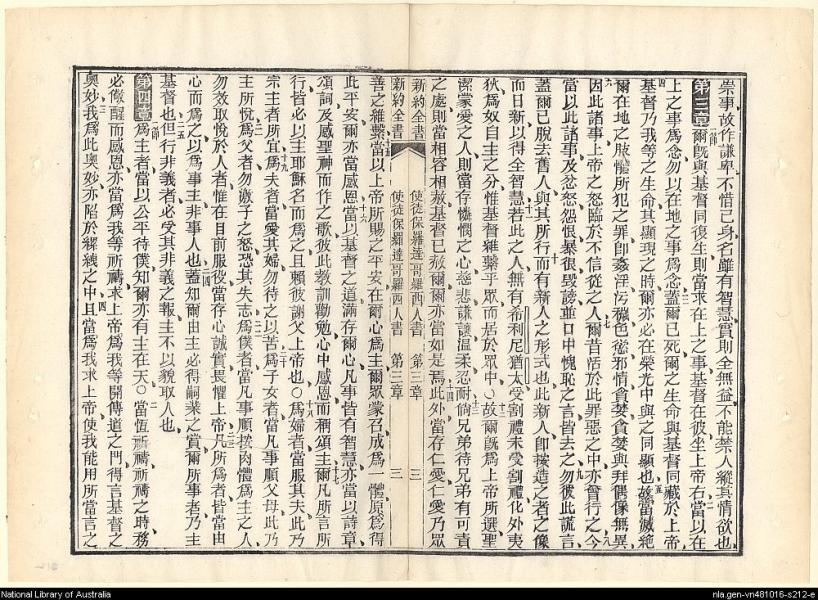 崇事故作謙卑不惜己身名雖有智慧實則全無益不能禁人縱其情欲也
第三章爾既與基督同復生則當求在上之事基督在彼坐上帝右當以在
上之事爲念勿以在地之事爲念蓋爾已死爾之生命與基督同藏於上帝
基督乃我等之生命其顯現之時爾亦必在榮光中與之同顯也故當滅絶
爾在地之肢體所犯之罪卽姦淫污穢色慾邪情貪婪貪婪與拜偶像無異
因此諸事上帝之怒臨於不信從之人爾昔活於此罪惡之中亦曾行之今
當以此諸事及忿怒怨恨暴很毀謗並口中愧恥之言皆去之勿彼此謊言
蓋爾已脫去舊人與其所行而有新人之形式也此新人卽按造之者之像
而日新以得全智慧若此之人無有希利尼猶太受割禮未受割禮化外夷
狄爲奴自主之分惟基督維繫乎眾而居於眾中○故爾既爲上帝所選聖
潔蒙愛之人則當存憐憫之心慈悲謙讓溫柔忍耐倘兄弟待兄弟有可責
之處則當相容相赦基督已赦爾爾亦當如是焉此外當存仁愛仁愛乃眾
新約全書 使徒保羅達哥羅西人書 第三章 三
新約全書 使徒保羅達哥羅西人書 第三章 三
善之維繫當以上帝所賜之平安在爾心爲主爾眾蒙召成爲一體原爲得
此平安爾亦當感恩當以基督之道滿存爾心凡事皆有智慧亦當以詩章
頌詞及感聖神而作之歌彼此教訓勸勉心中感恩而稱頌主爾凡所言所
行皆必以主耶穌名而爲之且賴彼謝父上帝也○爲婦者當服其夫此乃
宗主者所宜爲夫者當愛其婦勿待之以苦爲子女者當凡事順父母此乃
主所悅爲父者勿激子之怒恐其失志爲僕者當凡事順按肉體爲主之人
勿效取悅於人者惟在目前服役當存心誠實畏懼上帝凡所爲者皆當由
心而爲之以爲事主非事人也蓋知爾由主必得嗣業之賞爾所事者乃主
基督也但行非義者必受其非義之報主不以貌取人也
第四章爲主者當以公平待僕知爾亦有主在天○當恆祈禱祈禱之時務
必儆醒而感恩亦當爲我等祈禱求上帝爲我等開傳道之門得言基督之
奧妙我爲此奧妙亦陷於縲絏之中且當爲我求上帝使我能用所當言之
National Library of Australia
nla.gen-vn481016-s212-e